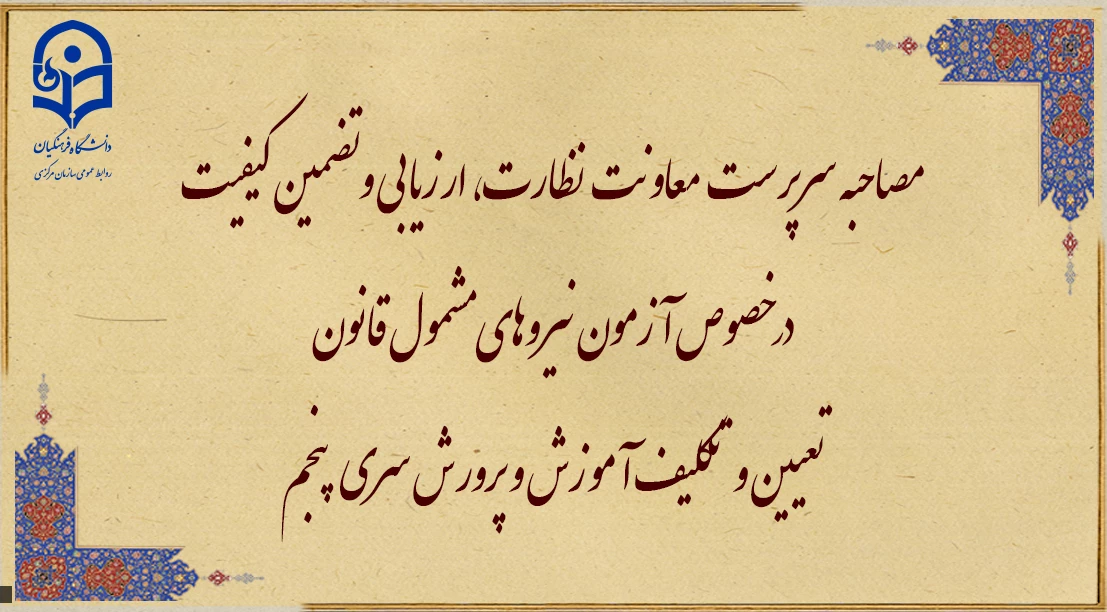 دانشگاه فرهنگیان
روابط عمومی سازمان مرکزی
مصاحبه سرپرست معاونت نظارت، ارزیابی و تضمین کیفیت
درخصوص آزمون نیروهای مشمول قانون
تعیین و تکلیف آموزش و پرورش سری پنجم